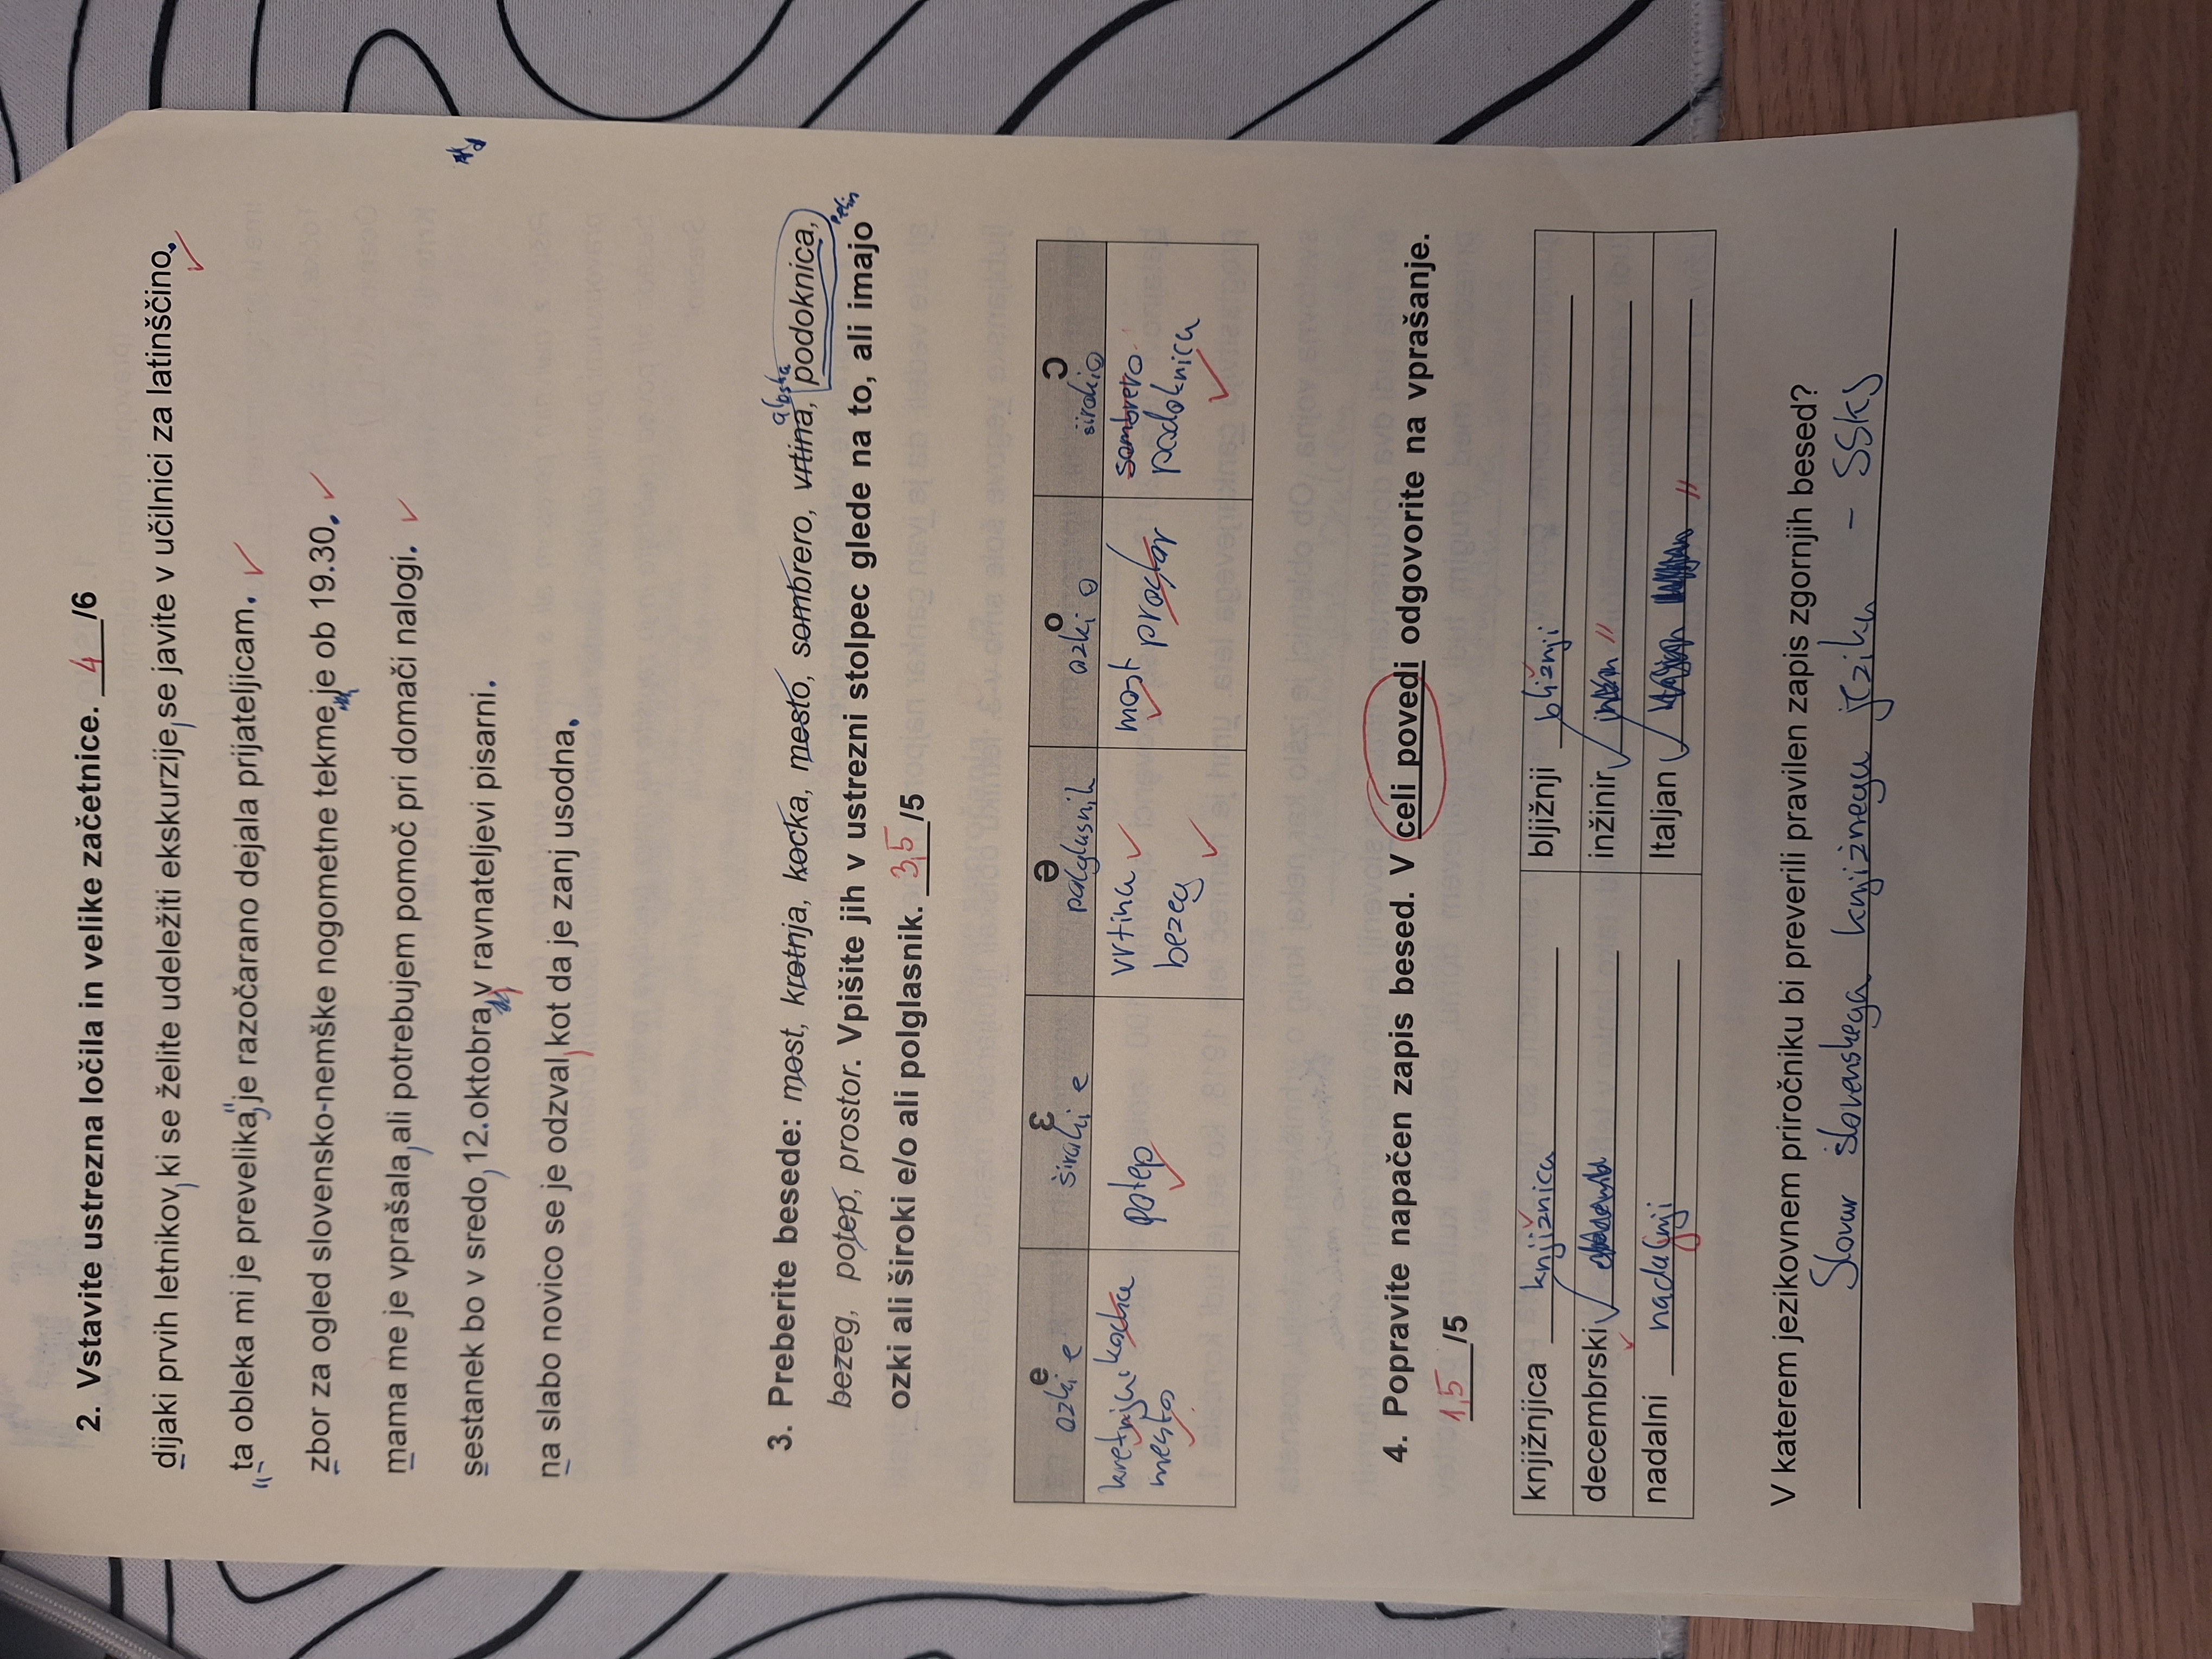 2. Vstavite ustrezna ločila in velike začetnice. 4/6
dijaki prvih letnikov, ki se želite udeležiti ekskurzije, se javite v učilnici za latinščino.
"ta obleka mi je prevelika," je razočarano dejala prijateljicam.
zbor za ogled slovensko-nemške nogometne tekme je ob 19.30.
mama me je vprašala, ali potrebujem pomoč pri domači nalogi.
sestanek bo v sredo, 12. oktobra, v ravnateljevi pisarni.
na slabo novico se je odzval, kot da je zanj usodna.
alpska
3. Preberite besede: most, kretnja, kocka, mesto, sombrero, vrtina, podoknica,
bezeg, potep, prostor. Vpišite jih v ustrezni stolpec glede na to, ali imajo
ozki ali široki e/o ali polglasnik. 3,5/5
e ɛ ə o ɔ
ozki e široki e polglasnik ozki o široki o
kretnja, kocka potep vrtina most prostor sombrero
mesto bezeg podoknica
4. Popravite napačen zapis besed. V celi povedi odgovorite na vprašanje.
1,5/5
knjižnjica knjižnica bljižnji bližnji
decembrski inžinir
nadalni nadaljnji Italjan
V katerem jezikovnem priročniku bi preverili pravilen zapis zgornjih besed?
Slovar slovenskega knjižnega jezika - SSKJ